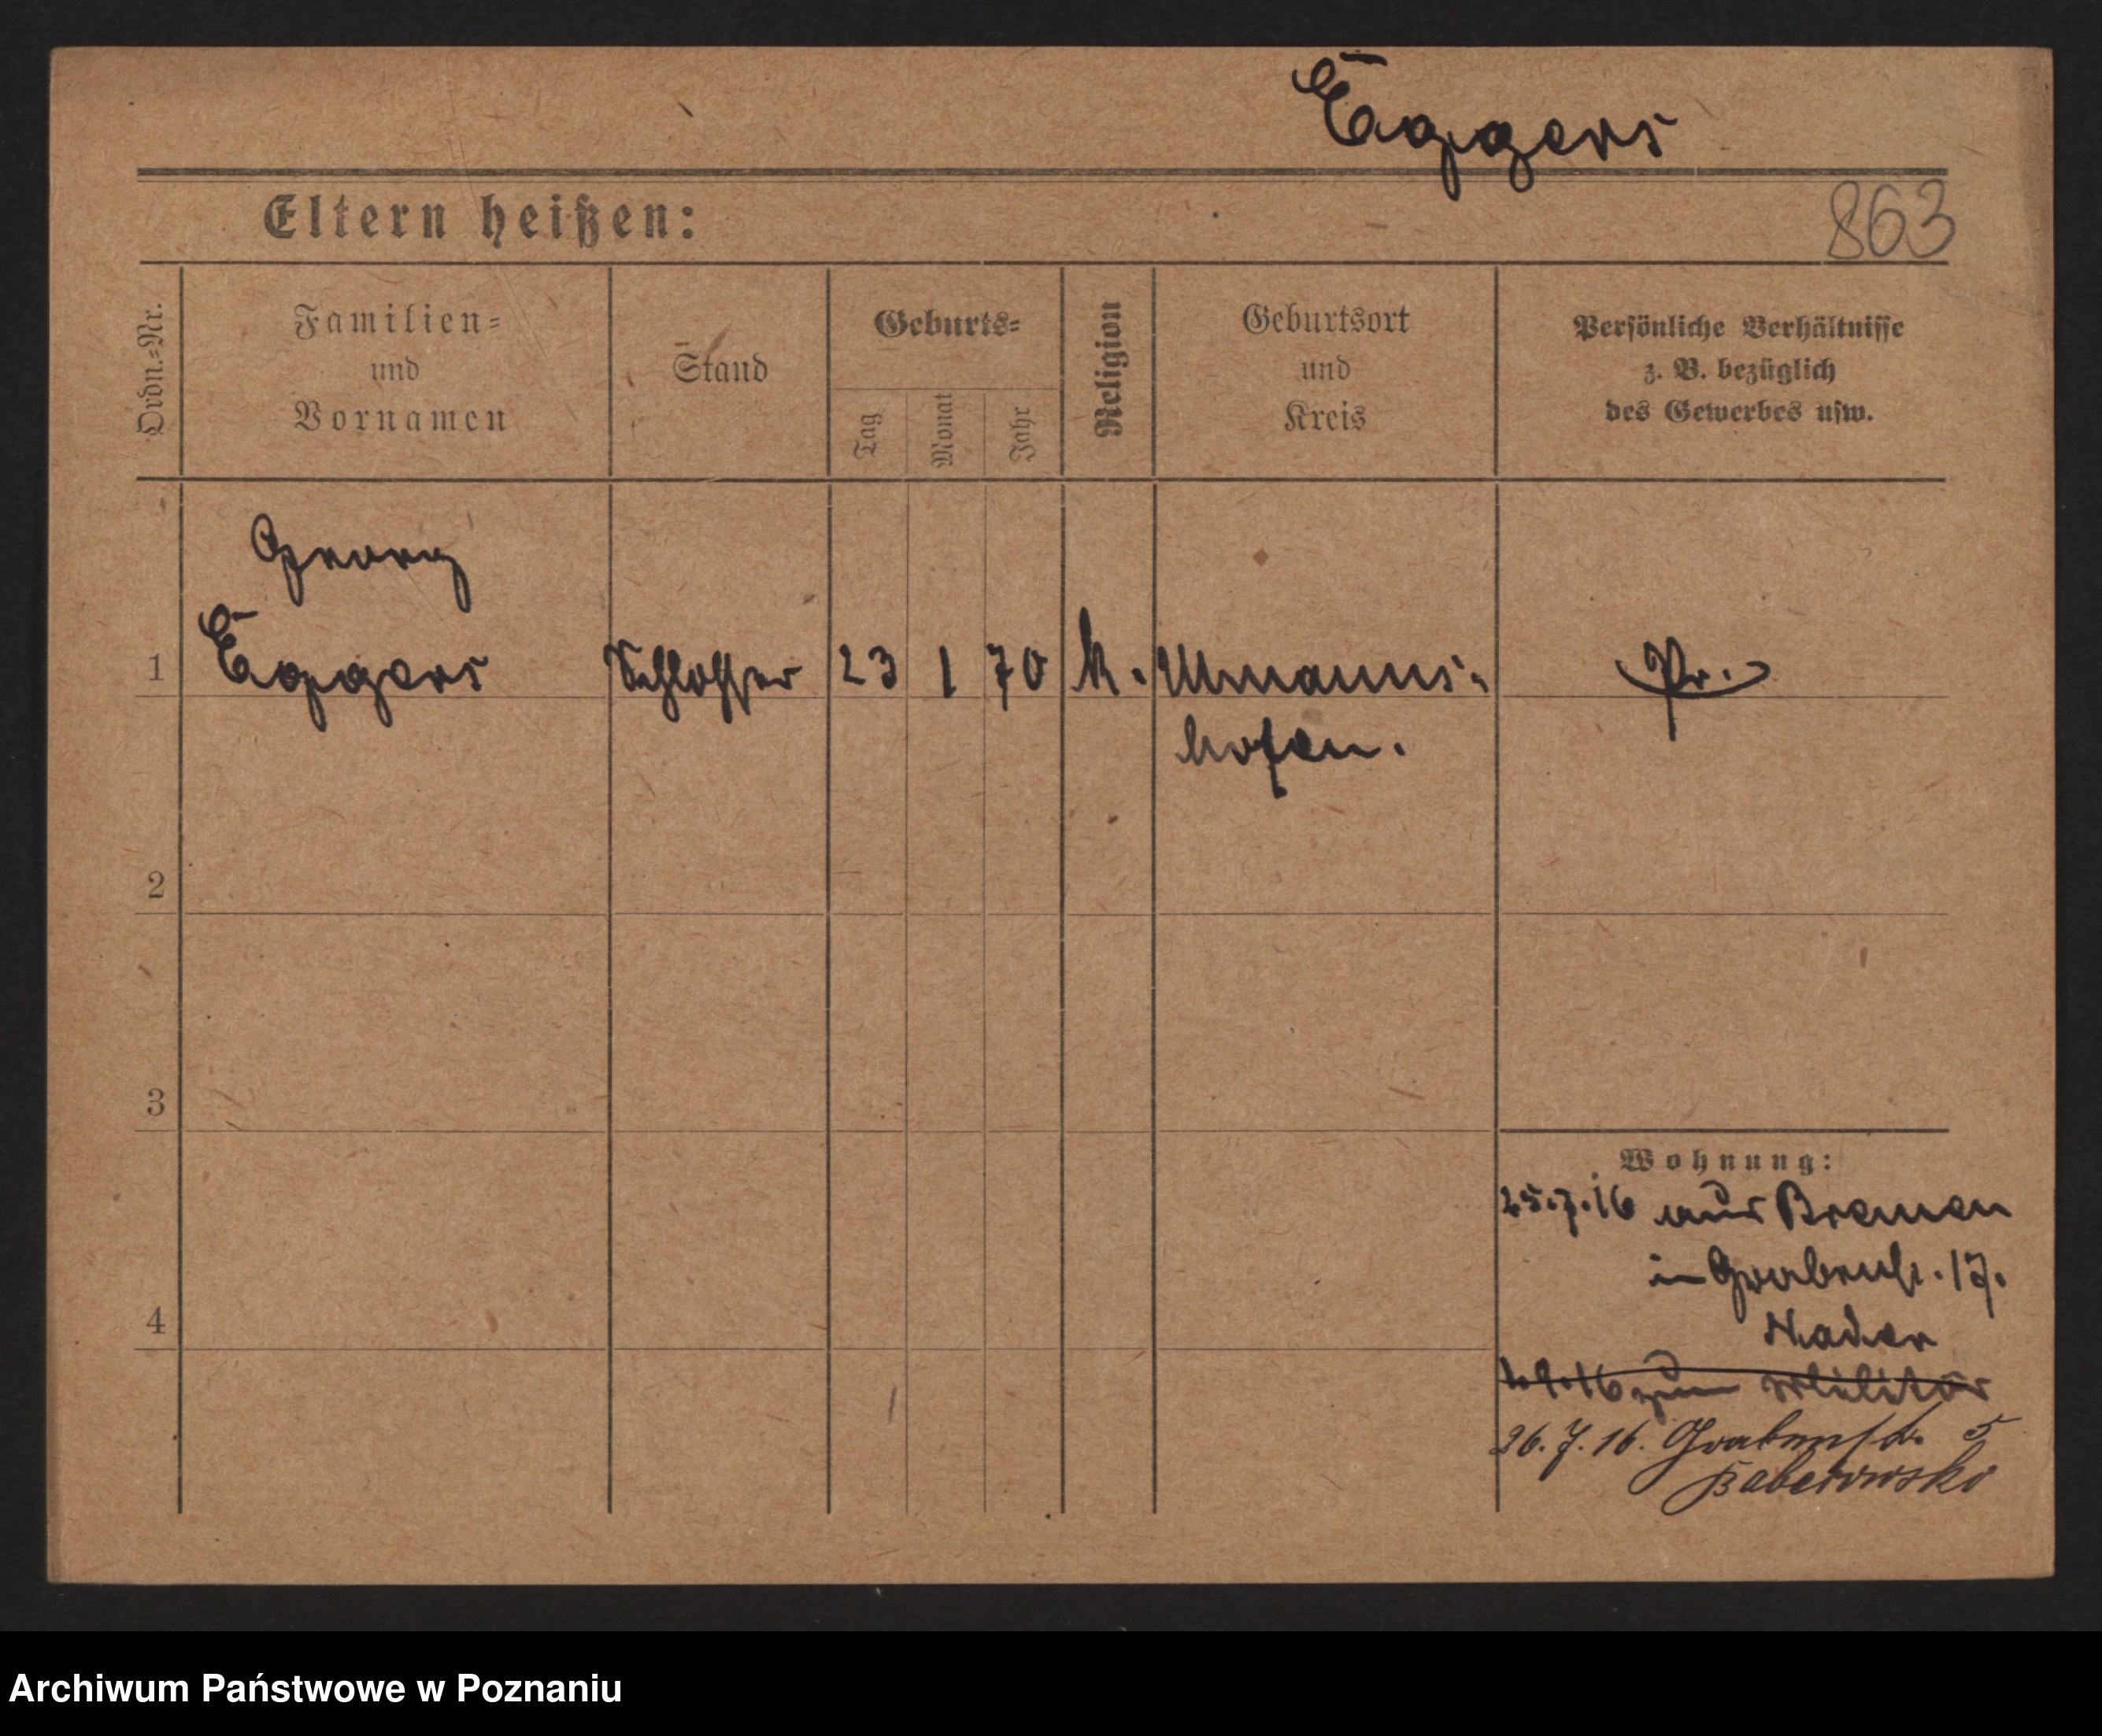 Eggers
Eltern heißen:
863
Ordn.=Nr.
Familien=
und
Vornamen
Stand
Geburts=
Tag
Monat
Jahr
Religion
Geburtsort
und
Kreis
Persönliche Verhältnisse
z. B. bezüglich
des Gewerbes usw.
Georg
1 Eggers Schlosser 23 1 70 k. Ulmanns-
hofen.
Pr.
2
3
4
Wohnung:
25.7.16 aus Bremen
in Grabenstr. 17.
9.16 zum Militär
26.7.16. Grabenstr. 5
Baberowski
Archiwum Państwowe w Poznaniu